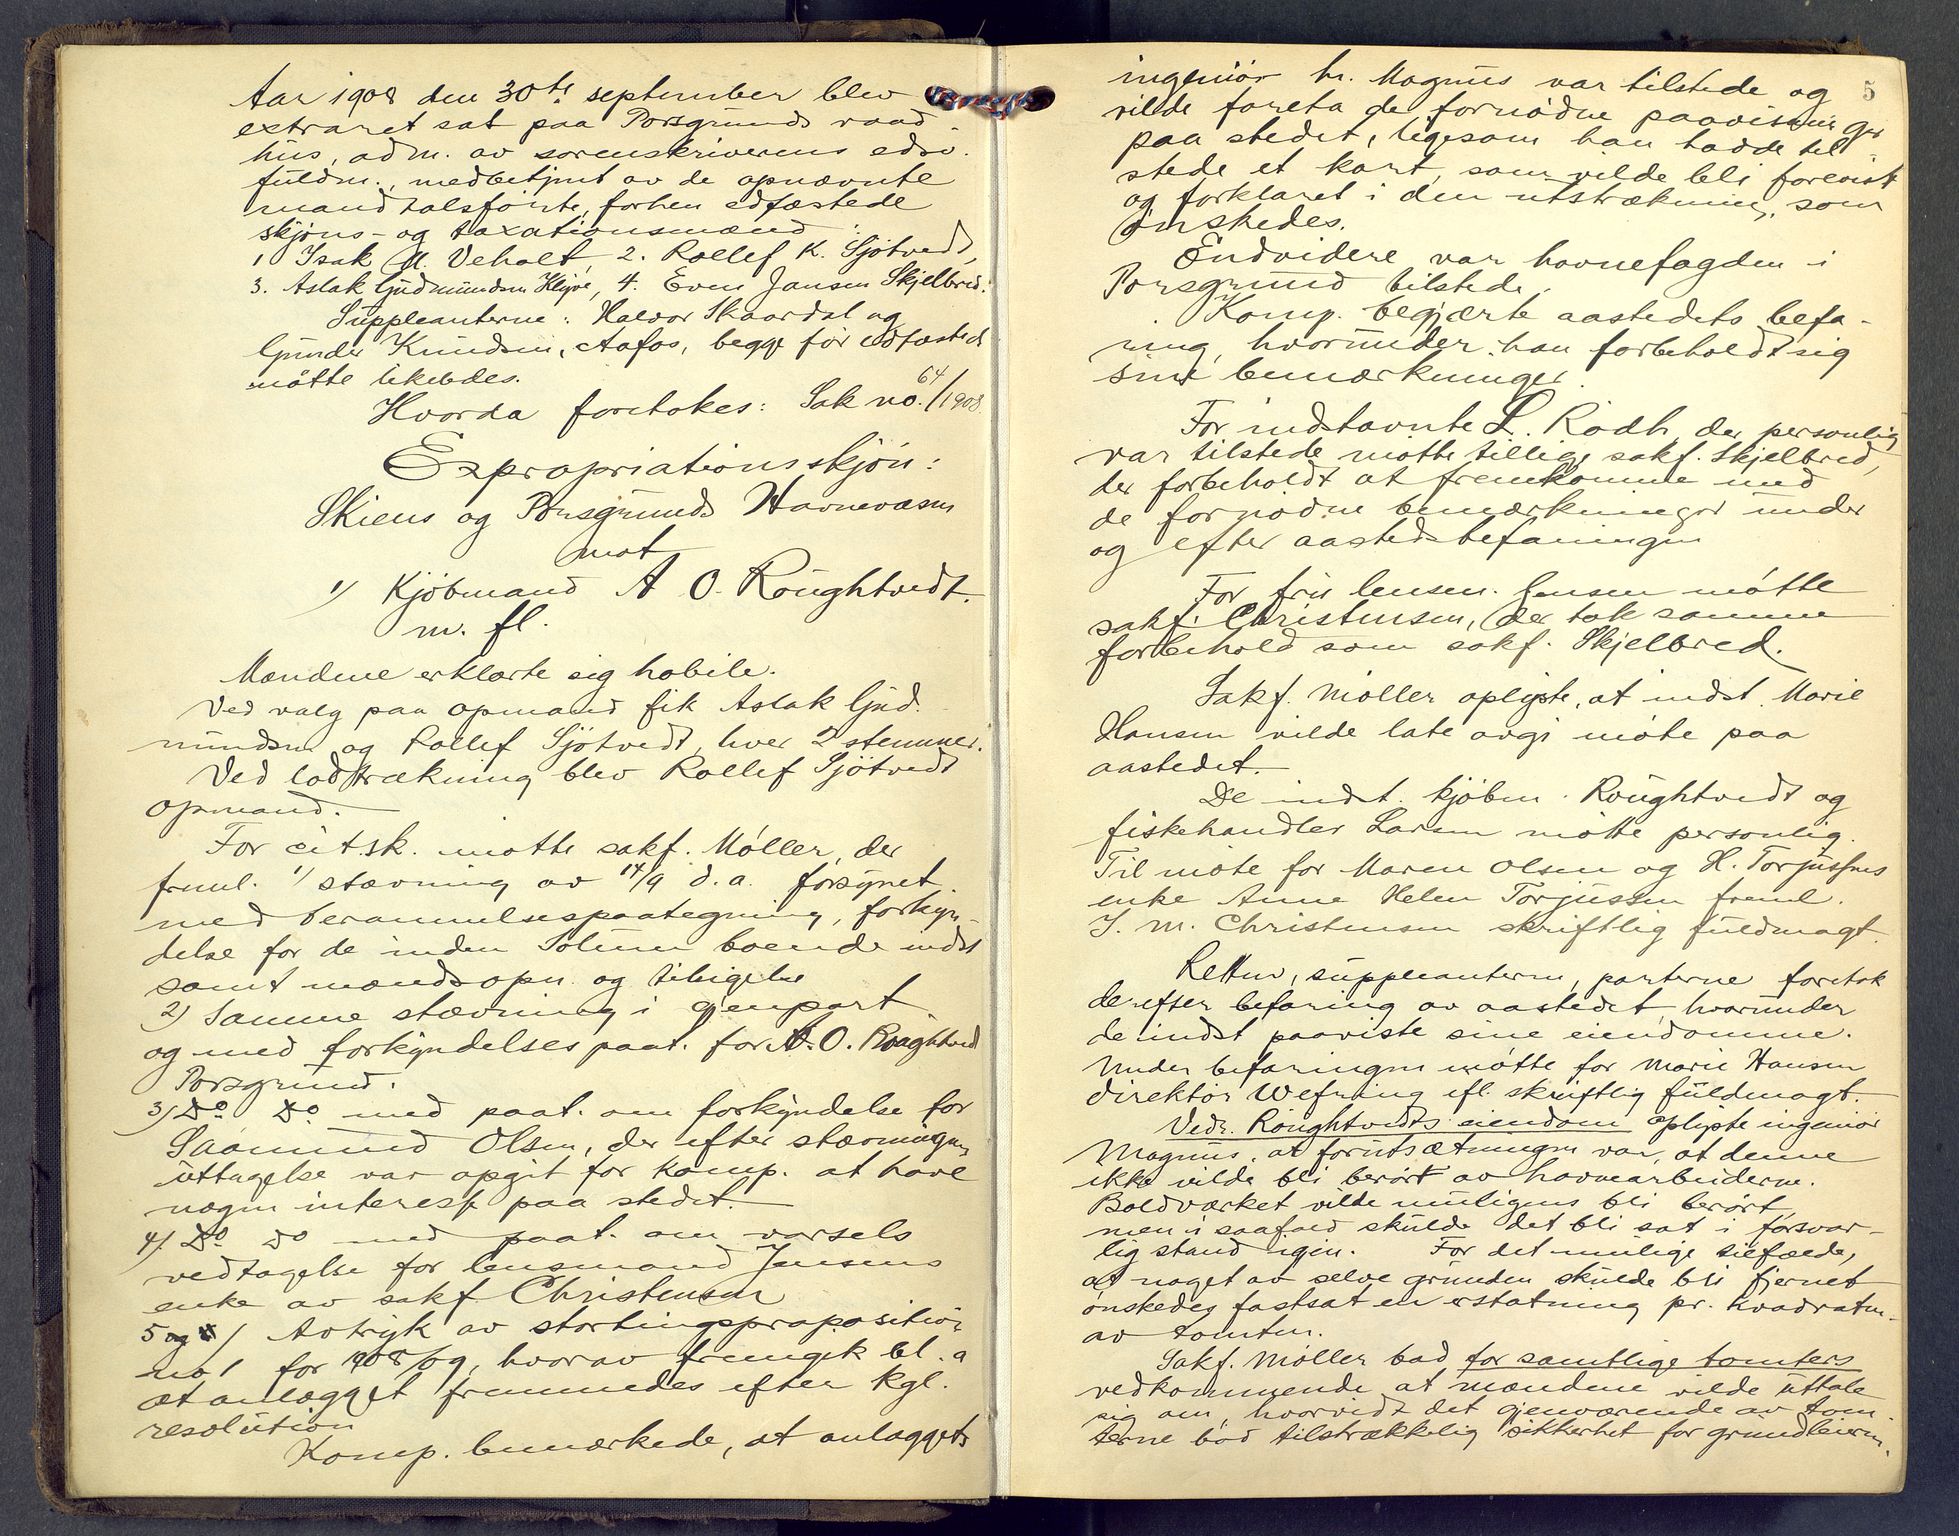 Aar 1908 den 30te september blev
extraret sat paa Porsgrunds raad-
hus, adm. av sorenskriverens edsv.
fuldm., medbetjent av de opnævnte
mandtalsførte, forhen edfæstede
skjøns- og taxationsmænd:
1. Isak M. Veholt, 2. Rollef K. Sjøtvedt,
3. Aslak Gudmundsen Klyve, 4. Even Jansen Skjelbred.
Suppleanterne: Halvor Skaardal og
Gunder Knudsen, Aafos, begge før edfæsted
møtte likeledes.
Hvorda foretokes: Sak no. 64/1908
Expropriationsskjøn:
Skiens og Porsgrunds Havnevæsen
mot
1) Kjøbmand A. O. Roughtvedt
m. fl.
Mændene erklærte sig habile.
Ved valg paa opmand fik Aslak Gud-
mundsen og Rollef Sjøtvedt, hver 2 stemmer.
Ved lodtrækning blev Rollef Sjøtvedt
opmand.
For cit.sk. møtte sakf. Møller, der
freml. 1) stævning av 14/9 d.a. forsynet
med berammelsespaategning, forkyn-
delse for de inden Solum boende indst
samt mændsopn. og tilsigelse
2) Samme stævning i gjenpart
og med forkyndelsespaat. for A. O. Roughtvedt
Porsgrund.
3) Do Do med paat. om forkyndelse for
Saamund Olsen, der efter stævningens
uttagelse var opgit for komp. at have
nogen interesse paa stedet.
4) Do Do med paat. om varsels
vedtagelse for lensmand Jensens
enke av sakf Christensen
5 og 6) Avtryk av stortingsproposition
no 1 for 1908/09, hvorav fremgik bl. a
at anlægget fremmedes efter kgl.
resolution
Komp. bemerkede, at anlæggets
5
ingeniør hr. Magnus var tilstede og
vilde foreta de fornødne paavisninger
paa stedet, ligesom han hadde til
stede et kart, som vilde bli forevist
og forklaret i den utstrækning, som
ønskedes.
Endvidere var havnefogden i
Porsgrund tilstede.
Komp. begjærte aastedets befa-
ring, hvorunder han forbeholdt sig
sine bemærkninger.
For indstævnte L. Rødh, der personlig
var tilstede møtte tillige sakf. Skjelbred,
der forbeholdt at fremkomme med
de fornødne bemærkninger under
og efter aastedsbefaringen
For fru lensm. Jensen møtte
sakf. Christensen, der tok samme
forbehold som sakf. Skjelbred.
Sakf. Møller oplyste, at indst. Marie
Hansen vilde late avgi møte paa
aastedet.
De indst. kjøbm. Roughtvedt og
fiskehandler Larsen møtte personlig.
Til møte for Maren Olsen og H. Torjussens
enke Anne Helen Torjussen freml.
J. M. Christensen skriftlig fuldmagt.
Retten, suppleanterne, parterne foretok
derefter befaring av aastedet, hvorunder
de indst paaviste sine eiendomme.
Under befaringen møtte for Marie Hansen
direktør Wefring ifl. skriftlig fuldmagt.
Vedr. Roughtvedts eiendom oplyste ingeniør
Magnus, at forutsætningen var, at denne
ikke vilde bli berørt av havnearbeiderne.
Boldværket vilde muligens bli berørt,
men i saafald skulde det bli sat i forsvar-
lig stand igjen. For det mulige tilfælde,
at noget av selve grunden skulde bli fjernet
ønskedes fastsat en erstatning pr. kvadratm.
av tomten.
Sakf. Møller bad for samtlige tomters
vedkommende at mændene vilde uttale
sig om, hvorvidt det gjenværende av tom-
terne bød tilstrækkelig sikkerhet for grundleien.